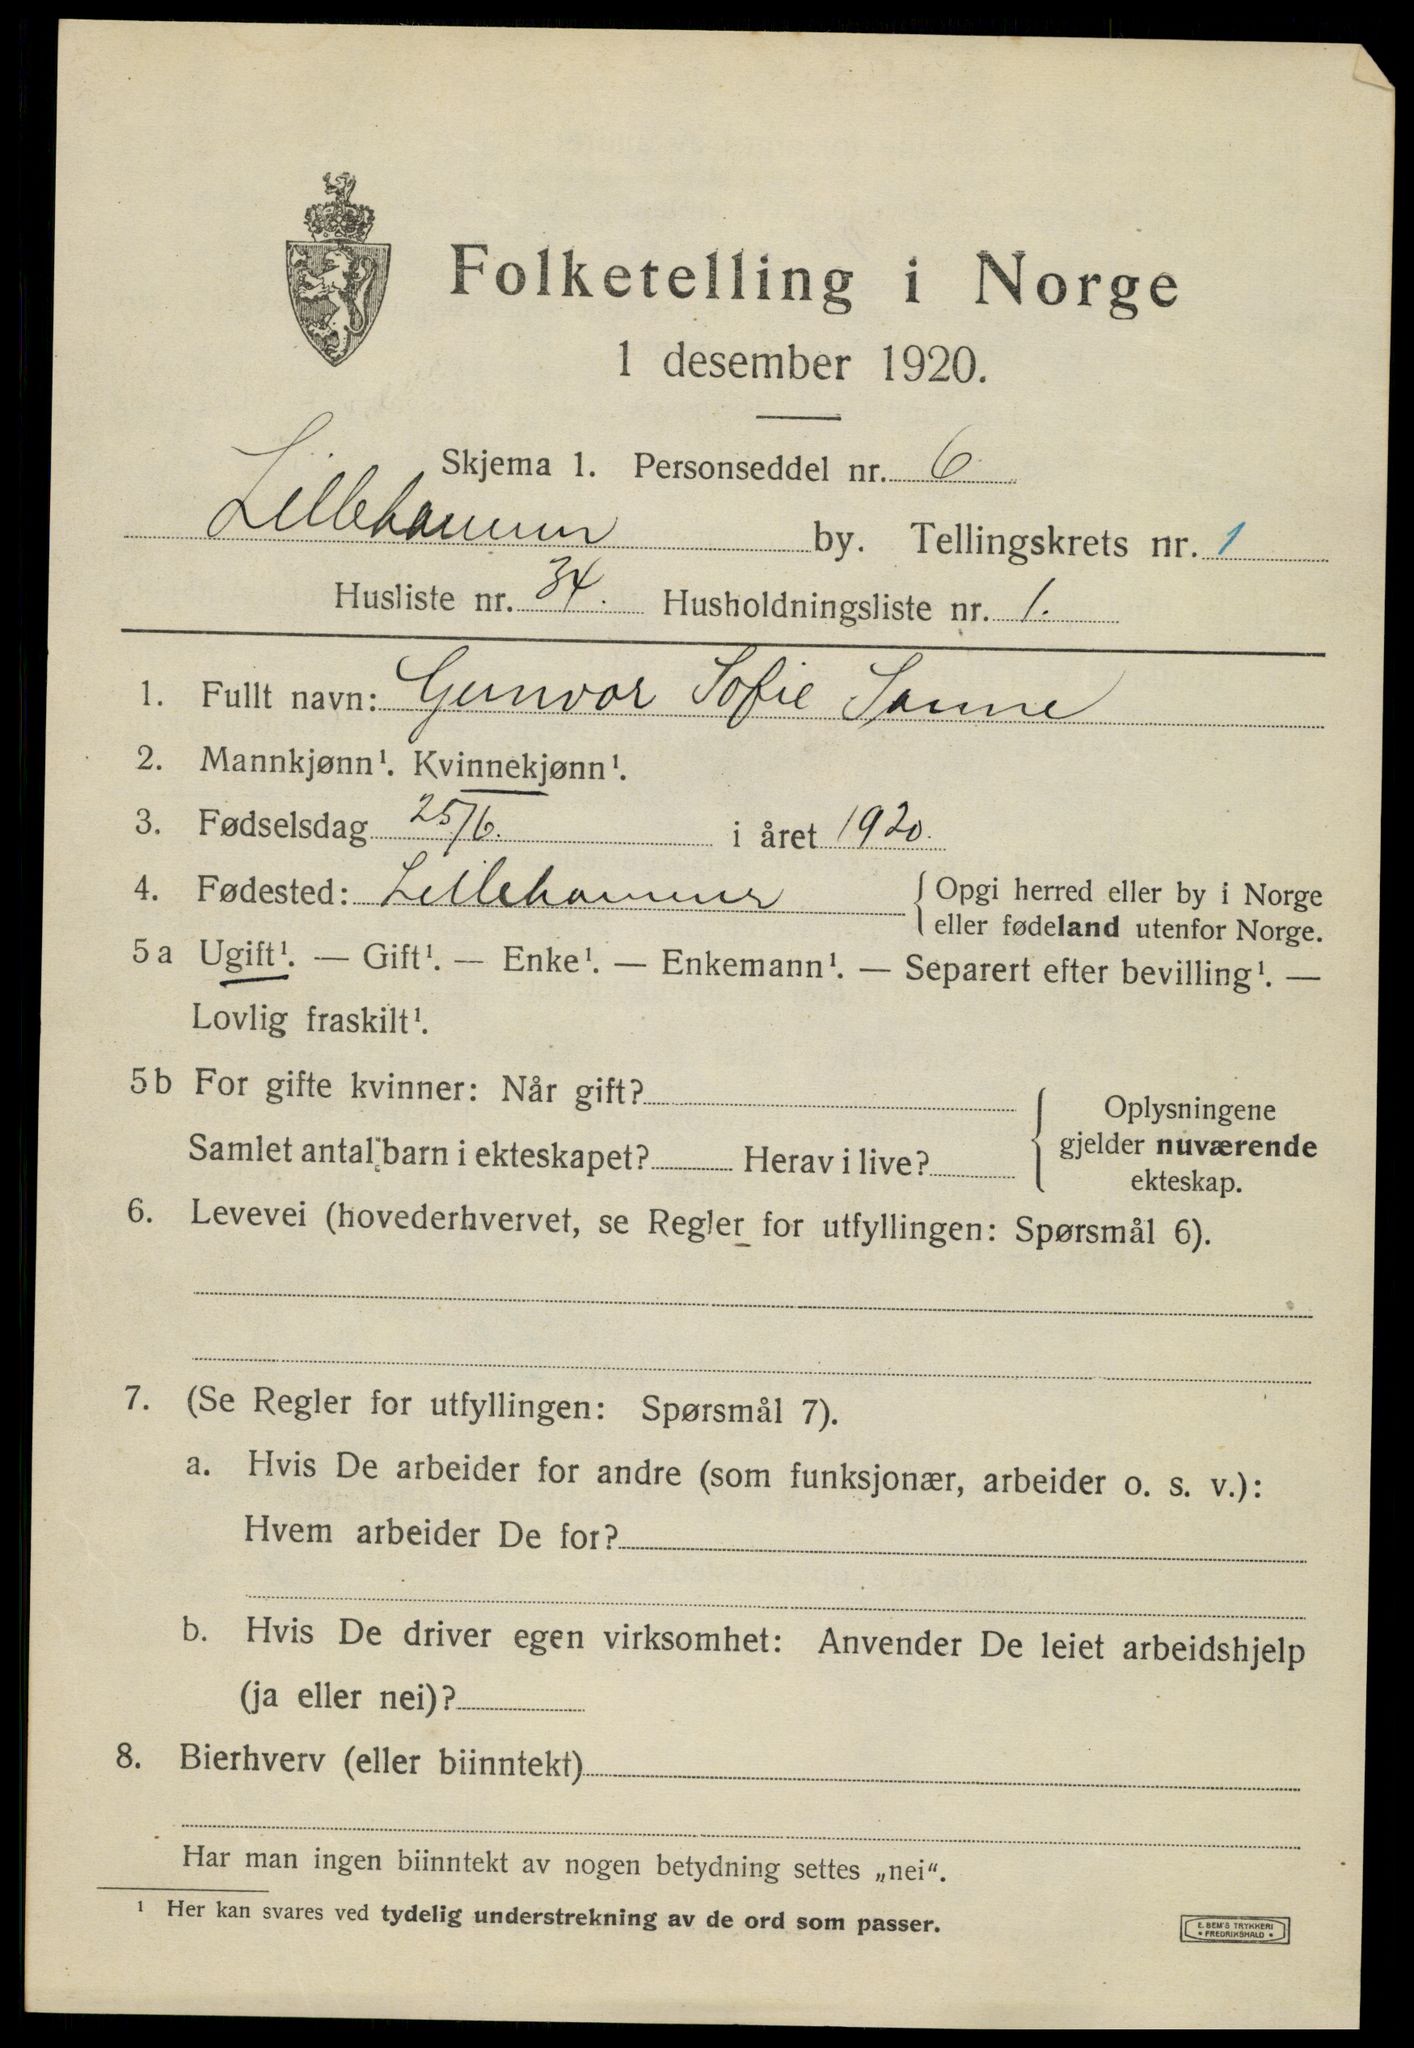 Folketelling i Norge
1 desember 1920.
Skjema 1. Personseddel nr. 6
Lillehammer by. Tellingskrets nr. 1
Husliste nr. 34. Husholdningsliste nr. 1.
1. Fullt navn: Gunvor Sofie Sanne
2. Mannkjønn¹. Kvinnekjønn¹.
3. Fødselsdag 25/6. i året 1920.
4. Fødested: Lillehammer { Opgi herred eller by i Norge
eller fødeland utenfor Norge.
5 a Ugift¹. — Gift¹. — Enke¹. — Enkemann¹. — Separert efter bevilling¹. —
Lovlig fraskilt¹.
5 b For gifte kvinner: Når gift?
Samlet antal barn i ekteskapet? Herav i live?
Oplysningene
gjelder nuværende
ekteskap.
6. Levevei (hovederhvervet, se Regler for utfyllingen: Spørsmål 6).
7. (Se Regler for utfyllingen: Spørsmål 7).
a. Hvis De arbeider for andre (som funksjonær, arbeider o. s. v.):
Hvem arbeider De for?
b. Hvis De driver egen virksomhet: Anvender De leiet arbeidshjelp
(ja eller nei)?
8. Bierhverv (eller biinntekt)
Har man ingen biinntekt av nogen betydning settes „nei".
¹ Her kan svares ved tydelig understrekning av de ord som passer.
E. SEM'S TRYKKERI
• FREDRIKSHALD •